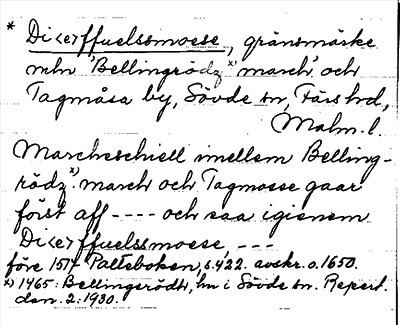 * Di<erffuelssmoese, gränsmärke
mln 'Bellingrödz x) march' och
Tagmåsa by, Sövde sn, Färs hd,
Malm. l.
Marcheschiell imellem Belling-
rödz x) march och Tagmosse gaar
först aff ---- och saa igienem
Di<erffuelssmoese, ---
före 1514 Palteboken, s. 422. avskr. o. 1650.
x) 1465: Bellingerödh, hn i Sövde sn. Repert.
den. 2: 1930.